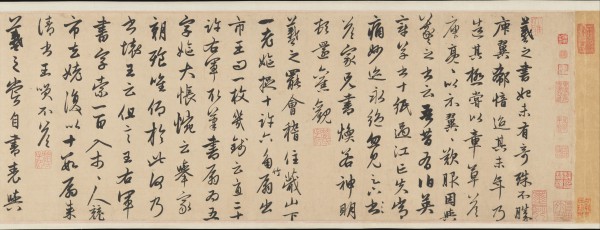 羲之書始未有奇殊不勝
庾翼郗愔迨其末年乃
造其極嘗以章草答
庾亮亮以示翼翼歎服因與
羲之書云吾昔有伯英
章草書十紙過江亡失常
痛妙迹永絕忽見足下
答家兄書煥若神明
頓還舊觀
羲之罷會稽住蕺山下
一老嫗捉十許六角竹扇出
市王問一枚幾錢云直二十
許右軍取筆書扇扇為五
字嫗大悵惋云舉家
朝飡唯仰於此何乃
書壞王云但言王右軍
書字索一百入市市人競
市去姥復以十數扇來
請書王笑不答
羲之嘗自書表與